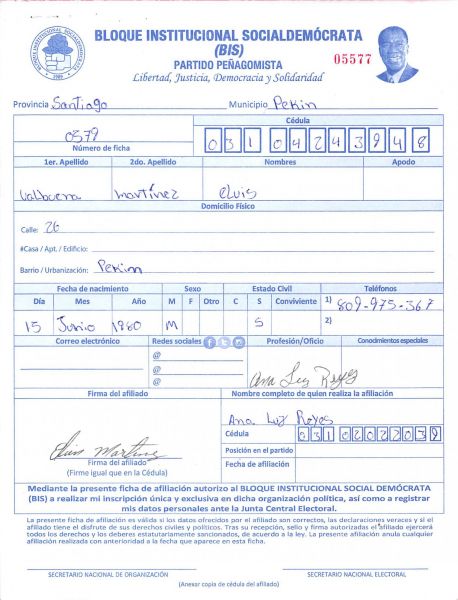 BLOQUE INSTITUCIONAL SOCIALDEMÓCRATA
(BIS)
PARTIDO PEÑAGOMISTA
05577
Libertad, Justicia, Democracia y Solidaridad
Provincia Santiago Municipio Pekin
Cédula
0379 031 0424394 8
Número de ficha
1er. Apellido 2do. Apellido Nombres Apodo
Valbuena Martínez Elvis
Domicilio Físico
Calle: 26
#Casa / Apt. / Edificio:
Barrio / Urbanización: Pekin
Fecha de nacimiento Sexo Estado Civil Teléfonos
Día Mes Año M F Otro C S Conviviente 1) 809-975-367
15 Junio 1980 M S 2)
Correo electrónico Redes sociales Profesión/Oficio Conocimientos especiales
@
@
@
Ana Luz Reyes
Firma del afiliado Nombre completo de quien realiza la afiliación
Ana Luz Reyes
Cédula 031 0202203 9
Elvis Martinez
Posición en el partido
Firma del afiliado
(Firme igual que en la Cédula)
Fecha de afiliación
Mediante la presente ficha de afiliación autorizo al BLOQUE INSTITUCIONAL SOCIAL DEMÓCRATA
(BIS) a realizar mi inscripción única y exclusiva en dicha organización política, así como a registrar
mis datos personales ante la Junta Central Electoral.
La presente ficha de afiliación es válida si los datos ofrecidos por el afiliado son correctos, las declaraciones veraces y si el
afiliado tiene el disfrute de sus derechos civiles y políticos. Tras su recepción, sello y firma autorizadas el afiliado ejercerá
todos los derechos y los deberes estatutariamente sancionados, de acuerdo a la ley. La presente afiliación anula cualquier
afiliación realizada con anterioridad a la fecha que aparece en esta ficha.
SECRETARIO NACIONAL DE ORGANIZACIÓN SECRETARIO NACIONAL ELECTORAL
(Anexar copia de cédula del afiliado)